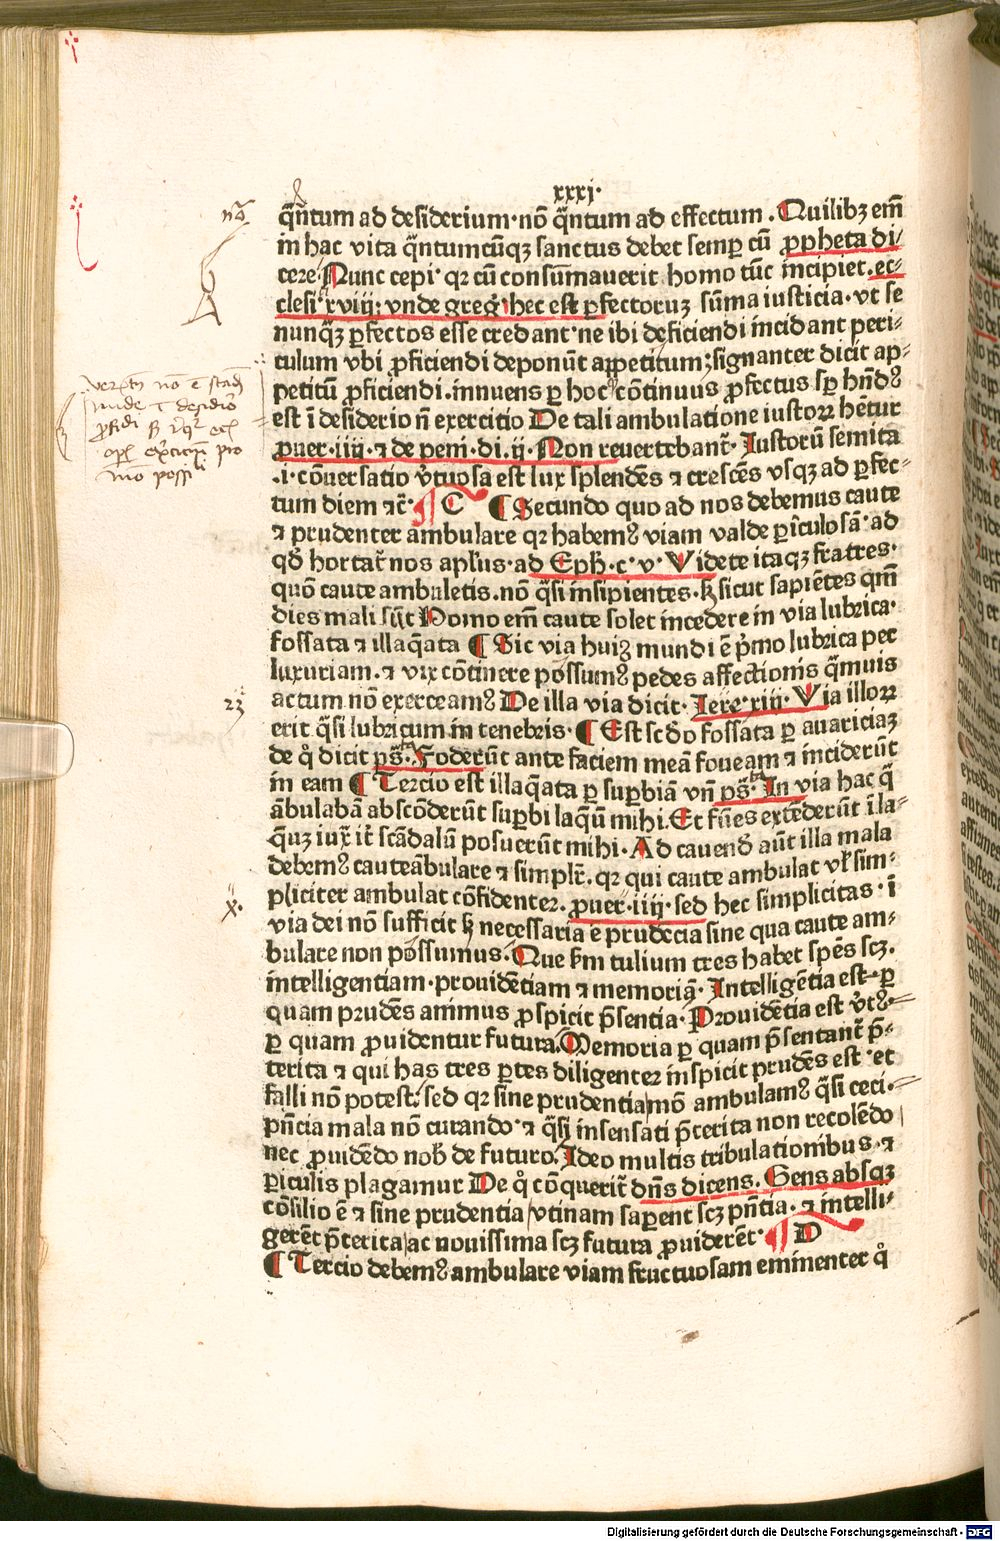 xxxj.
q̄ntum ad desiderium·nō q̄ntum ad effectum. Quilibꝫ em̄
in hac vita q̄ntumcūqꝫ sanctus debet semꝑ cū ꝓpheta di/
cere·Nunc cepi· qꝛ cū consūmauerit homo tūc incipiet.ec⸗
clesi·xviij· vnde greg̉ hec est ꝑfectoruꝫ sūma iusticia·vt se
nunq̄ꝫ ꝑfectos esse credant·ne ibi deficiendi incidant peri⸗
culum vbi ꝓficiendi deponūt appetitum;signanter dicit ap⸗
petitū ꝓficiendi.innuens ꝑ hoc cōtinuus ꝓfectus sꝑ hn̄dꝰ
est ī desiderio n̄ exercitio De tali ambulatione iustoꝝ hētur
ꝓuer·iiij·⁊ de peni·di.ij·Non reuertebant᷑·Iustorū semita
.i·cōuersatio v̉tuosa est lux splendēs ⁊ crescēs vsqꝫ ad ꝑfec⸗
tum diem ⁊c̄·¶ C ¶ Secundo quo ad nos debemus caute
⁊ prudenter ambulare qꝛ habemꝰ viam valde ꝑiculosā·ad
qd̉ hortat᷑ nos apl̉us·ad Eph·c·v·Videte itaqꝫ fratres·
quō caute ambuletis.nō q̄si insipientes·sꝫ sicut sapiētes qm̄
dies mali sūt Homo em̄ caute solet incedere in via lubrica·
fossata ⁊ illaq̄ata ¶ Sic via huiꝰ mundi ē p̉mo lubrica per
luxuriam.⁊ vix cōtinere possumꝰ pedes affectionis q̄muis
actum nō exerceamꝰ De illa via dicit·Iere·xiij·Via illoꝝ
erit q̄si lubricum in tenebris·¶ Est scd̉o fossata ꝑ auariciaꝫ
de q̉ dicit ps̄·Foderūt ante faciem meā foueam ⁊ inciderūt
in eam ¶ Tercio est illaq̄ata ꝑ suꝑbiā vn̄ ps̄·In via hac q̄
ābulabā abscōderūt suꝑbi laq̄um mihi.Et fūes extēderūt ī la⸗
q̄uꝫ iux̄ it᷑ scādalū posuerūt mihi·Ad cauend̉ aūt illa mala
debemꝰ caute ābulare ⁊ simpl᷑r.qꝛ qui caute ambulat vl̉ sim⸗
pliciter ambulat cōfidenter.ꝓuer·iiij·sed hec simplicitas·ī
via dei nō sufficit sꝫ necessaria ē prudēcia sine qua caute am⸗
bulare non possumus.Que km̄ tulium tres habet spēs scꝫ.
intelligentiam·prouidētiam ⁊ memoriā·Intelligētia est·ꝑ
quam prudēs animus ꝓspicit p̄sentia·Prouidētia est v̉tꝰ·
ꝑ quam ꝓuidentur futura.Memoria ꝑ quam p̄sentant᷑ p̄⸗
terita ⁊ qui has tres ꝑtes diligenter inspicit prudēs est·et
falli nō potest:sed qꝛ sine prudentia mō ambulamꝰ q̄si ceci.
pn̄cia mala nō curando·⁊ q̄si insensati p̄terita non recolēdo
nec ꝓuidēdo nob̉ de futuro.Ideo multis tribulationibus.⁊
ꝑiculis plagamur De q̉ cōquerit᷑ dn̄s dicens.Gens absqꝫ
cōsilio ē ⁊ sine prudentia vtinam saꝑent scꝫ pn̄tia·⁊ intelli⸗
gerēt p̄terita ac nouissima scꝫ futura ꝓuiderēt·¶ D
¶ Tercio debemꝰ ambulare viam fructuosam eminenter q̉
nō
23
x.
Digitalisierung gefördert durch die Deutsche Forschungsgemeinschaft - DFG